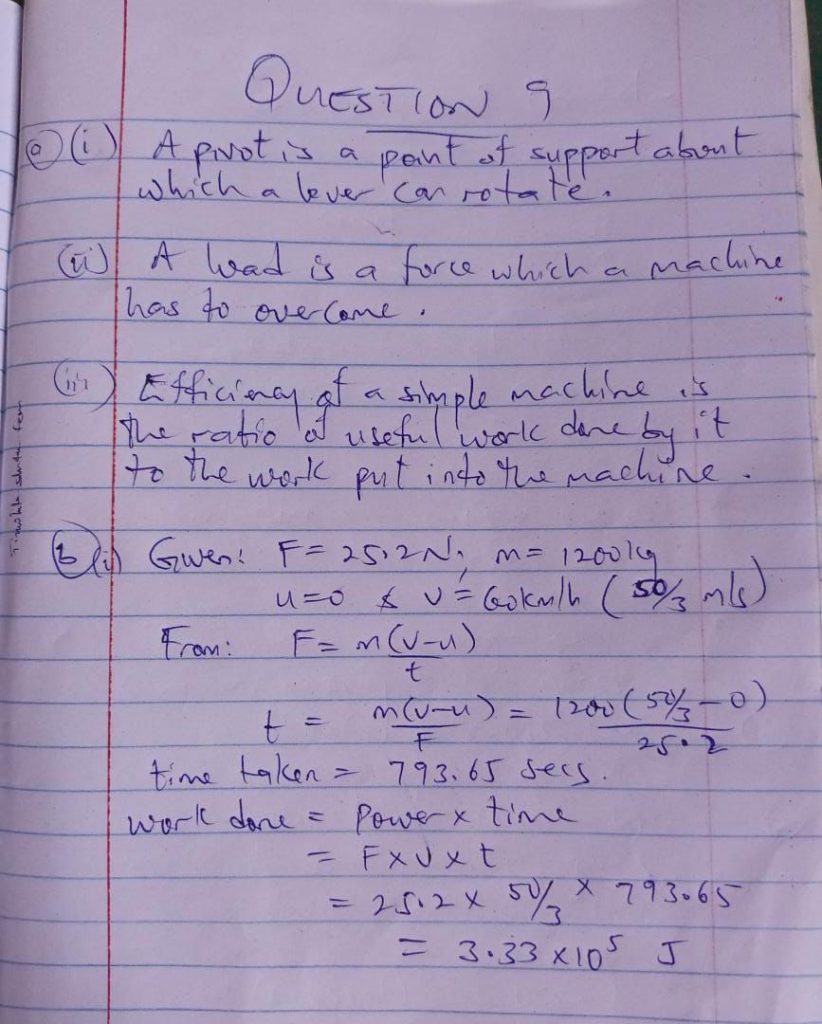 QUESTION 9
a (i) A pivot is a point of support about
which a lever can rotate.
(ii) A load is a force which a machine
has to overcome.
(iii) Efficiency of a simple machine is
the ratio of useful work done by it
to the work put into the machine.
b (i) Given: F = 25.2N, m = 1200kg
u=0 & v = 60km/h (50/3 m/s)
From: F = m(v-u)
t
t = m(v-u) = 1200(50/3 - 0)
F 25.2
time taken = 793.65 secs.
work done = Power x time
= F x v x t
= 25.2 x 50/3 x 793.65
= 3.33 x 10⁵ J